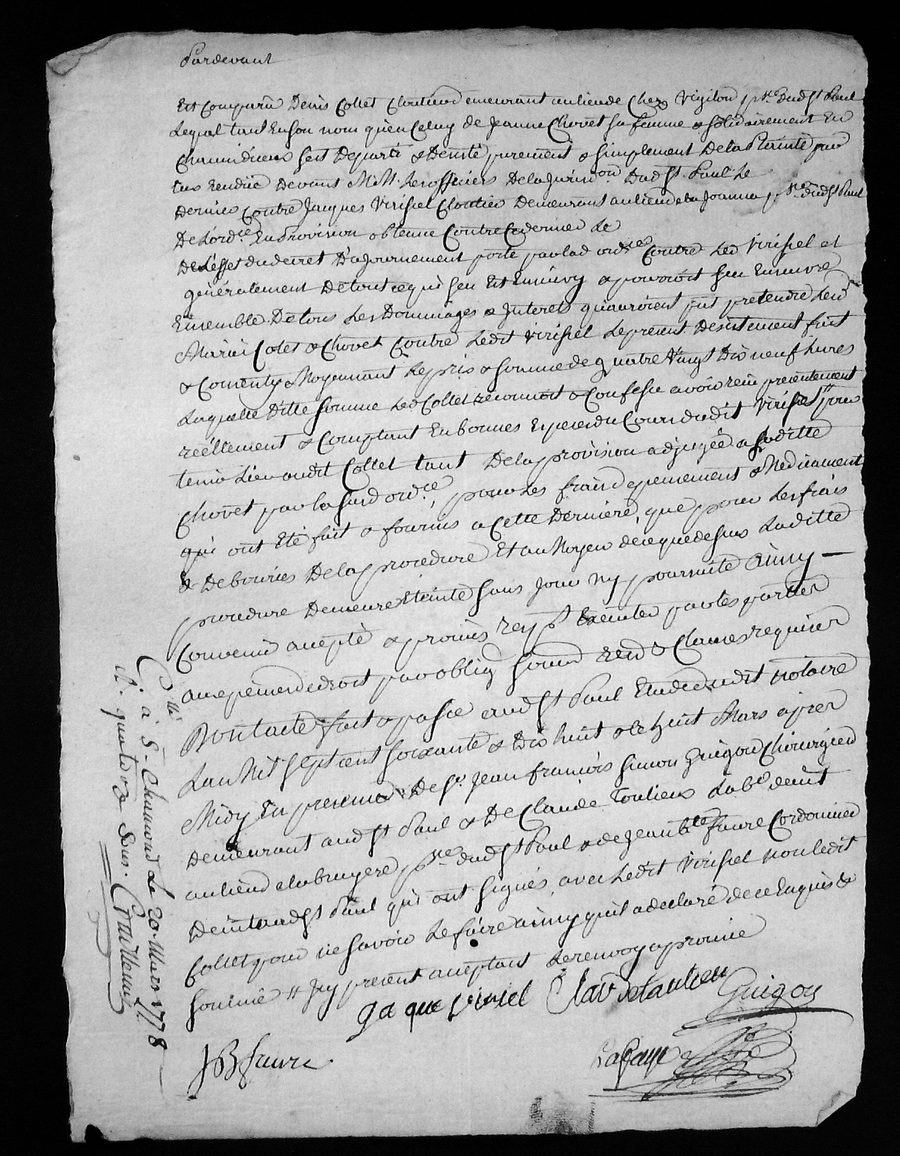 Pardevant
Est Comparu Denis Collet Cloutier demeurant au lieu de Chez Virilou psse dud St Paul
Lequel tant En son nom qu'en Celuy de Jeanne Chovet sa femme & solidairement En
Chacun d'eux sest Departi & Desisté purement & simplement De la Plainte par
eux rendüe Devant MM. Les officiers De la Jurisdon. Dud St. Paul Le
Dernier Contre Jacques Virissel Cloutier Demeurant au lieu de la Joanna psse dudt St Paul
De L'ordce En Provision obtenue Contre Ce dernier Le
De L'effet du decret D'ajournement porté par lad ordce Contre Led Virissel et
généralement De tout ce qui sen Est Ensuivy & pourroit sen Ensuivre
Ensemble De tous Les Dommages & Interets quauroient pu pretendre Lesd
Mariés Colet & Chovet Contre Ledit Virissel Le present Desistement fait
& Consenty Moyennant Le prix & somme de quatre Vingt Dix neuf Livres
Laquelle Ditte somme Led Collet reconnoit & Confesse avoir reçu presentement
reéllement & Comptant En bonnes Especes du Cours dudit Virissel # pour
tenir Lieu audit Collet tant De la provision adjugée a sa ditte
Chovet par la susd ordce, pour Les frais de pensement & Medicament
qui ont Eté fait & fournis a Cette Derniere, que pour Les frais
& Deboursés De la procedure Et au Moyen de ce que dessus Laditte
procedure Demeure Eteinte sans Jour ny poursuite Ainsy
Convenu accepté & promis Executer par les parties
a peine de droit par oblig soumd rend & Clauses requises
Dont acte fait & passé aud St Paul Etude dudit notaire
L'an Mil sept cent soixante & Dix huit & Le huit Mars après
Midy En presence De Sr. Jean francois Simon Guigou Chirurgien
Demeurant aud St Paul & De Claude Toulieux Labr demt
au lieu de la bruyere psse dud St Paul & de Jean bte faure Cordonnier
Demt aud St Paul qui ont signés, avec Ledit Virissel non Ledit
Collet pour ne savoir Le faire ainsy quil a declaré de ce Enquis &
sommé # Icy present acceptant Le renvoy aprouvé
Ja que virisel Claude Toulieu Guigou
JB faure
Collé à St. Chaumond Le 20. Mars 1778
R. quatorze sous.